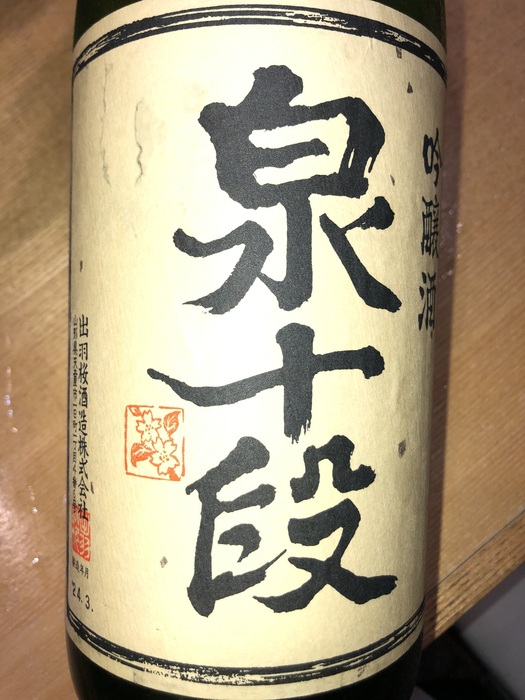 吟醸酒
泉十段
出羽桜酒造株式会社
山形県天童市一日町一丁目4番6号
製造年月
24.3.